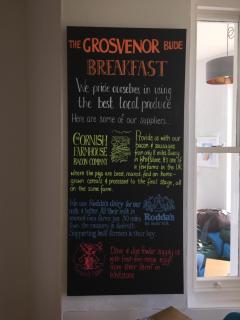 THE GROSVENOR BUDE
BREAKFAST
We pride ourselves in using
the best local produce
Here are some of our suppliers...
CORNISH
FARMHOUSE
BACON COMPANY
Provide us with our
bacon & sausages
from only 8 miles away
in Whitstone. It's one of
a few farms in the UK,
where the pigs are bred, reared, fed on home-
grown cereals & processed to the final stage, all
on the same farm.
We use Rodda's dairy for our
milk & butter. All their milk is
sourced from farms just 30 miles
from the creamery in Redruth.
Supporting local farmers is their key.
Rodda's
supply us
with free range eggs
from their farm in
Whitstone